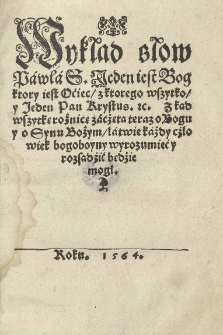 Wykład słow
Páwłá S. Jeden iest Bog
ktory iest Oćiec / z ktorego wszytko /
y Jeden Pan Krystus. ꝛc. Z kąd
wszytkę rożnicę záczętą teraz o Bogu
y o Synu Bożym / łátwie káżdy czło
wiek bogoboyny wyrozumieć y
rozsądźić będzie
mogł.
Roku. 1564.